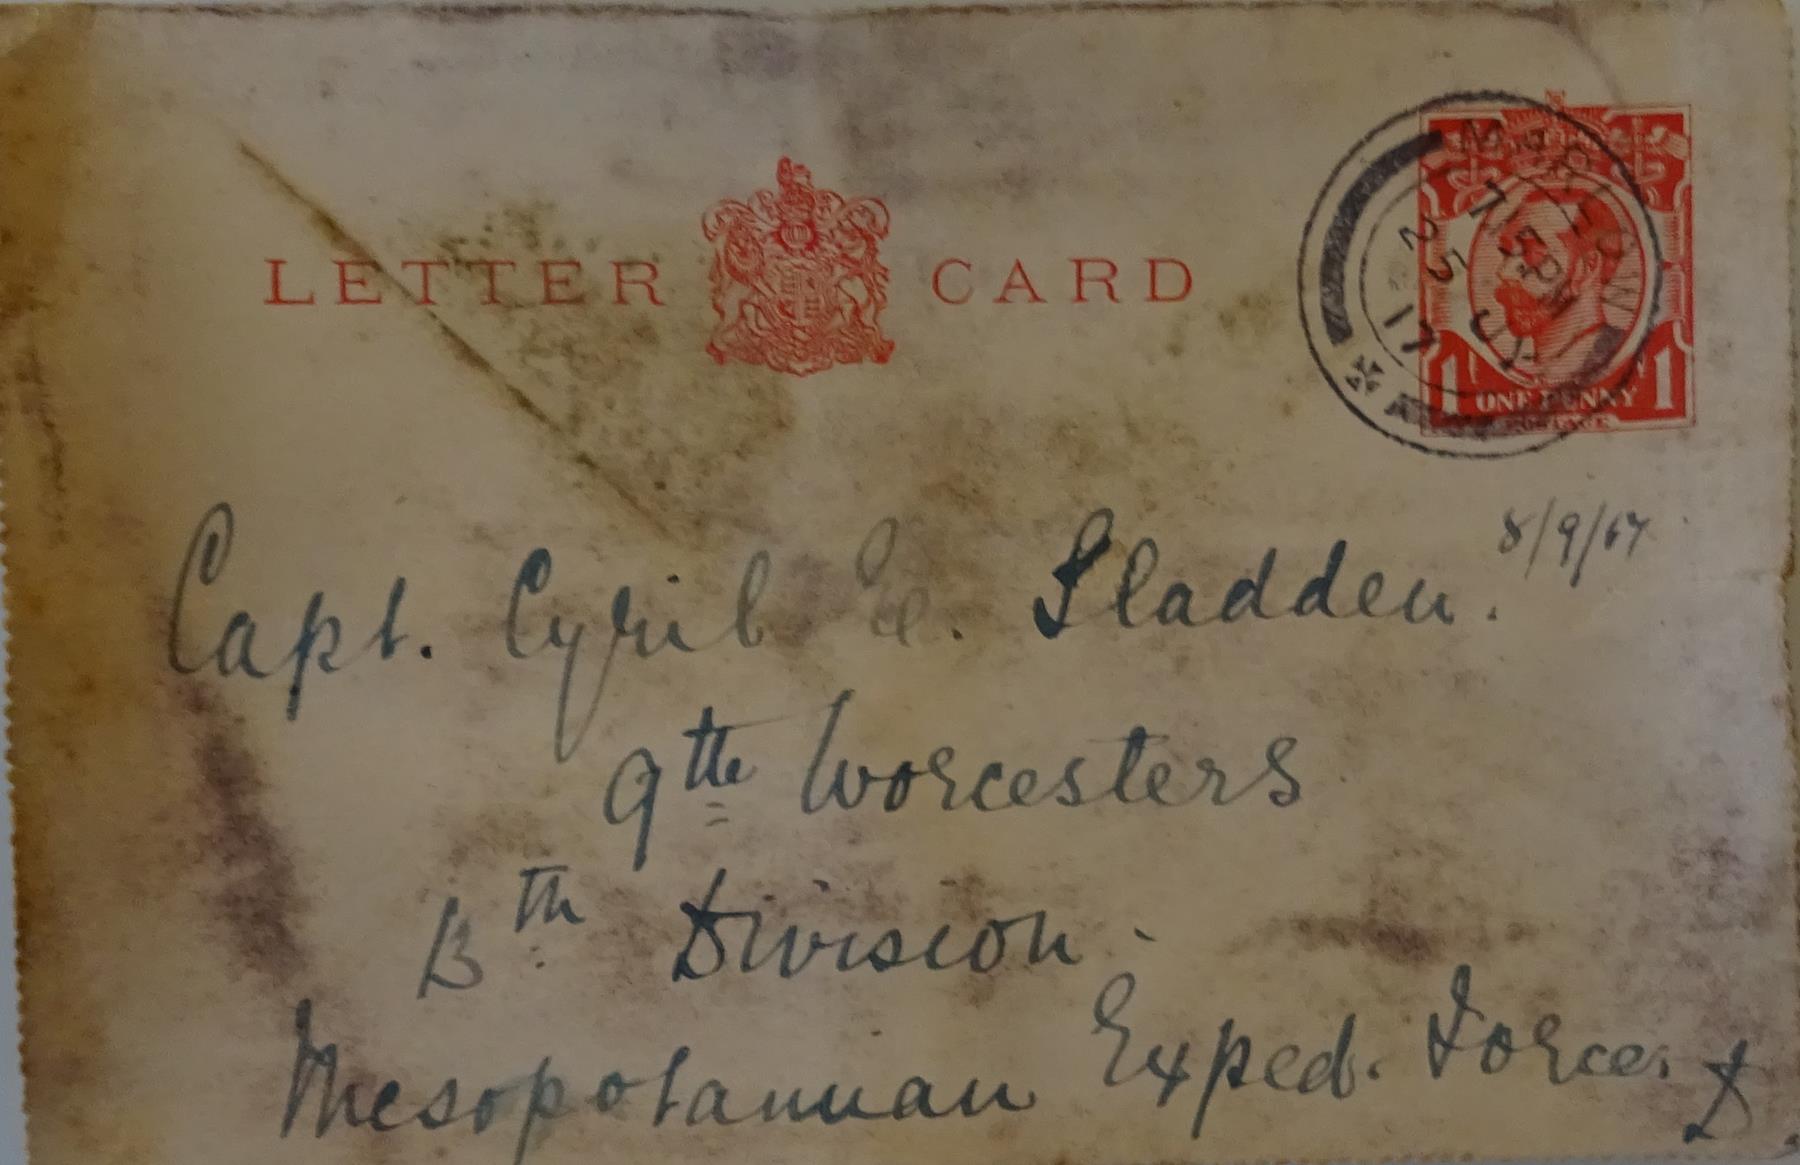 LETTER CARD
7.15 PM
25 JY
17
1 ONE PENNY 1
POSTAGE
8/9/17
Capt. Cyril E. Sladden.
9th Worcesters
13th Division.
Mesopotamian Exped. Force.
D.